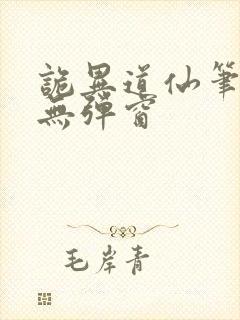 詭異道仙筆
無彈窗
毛岸青